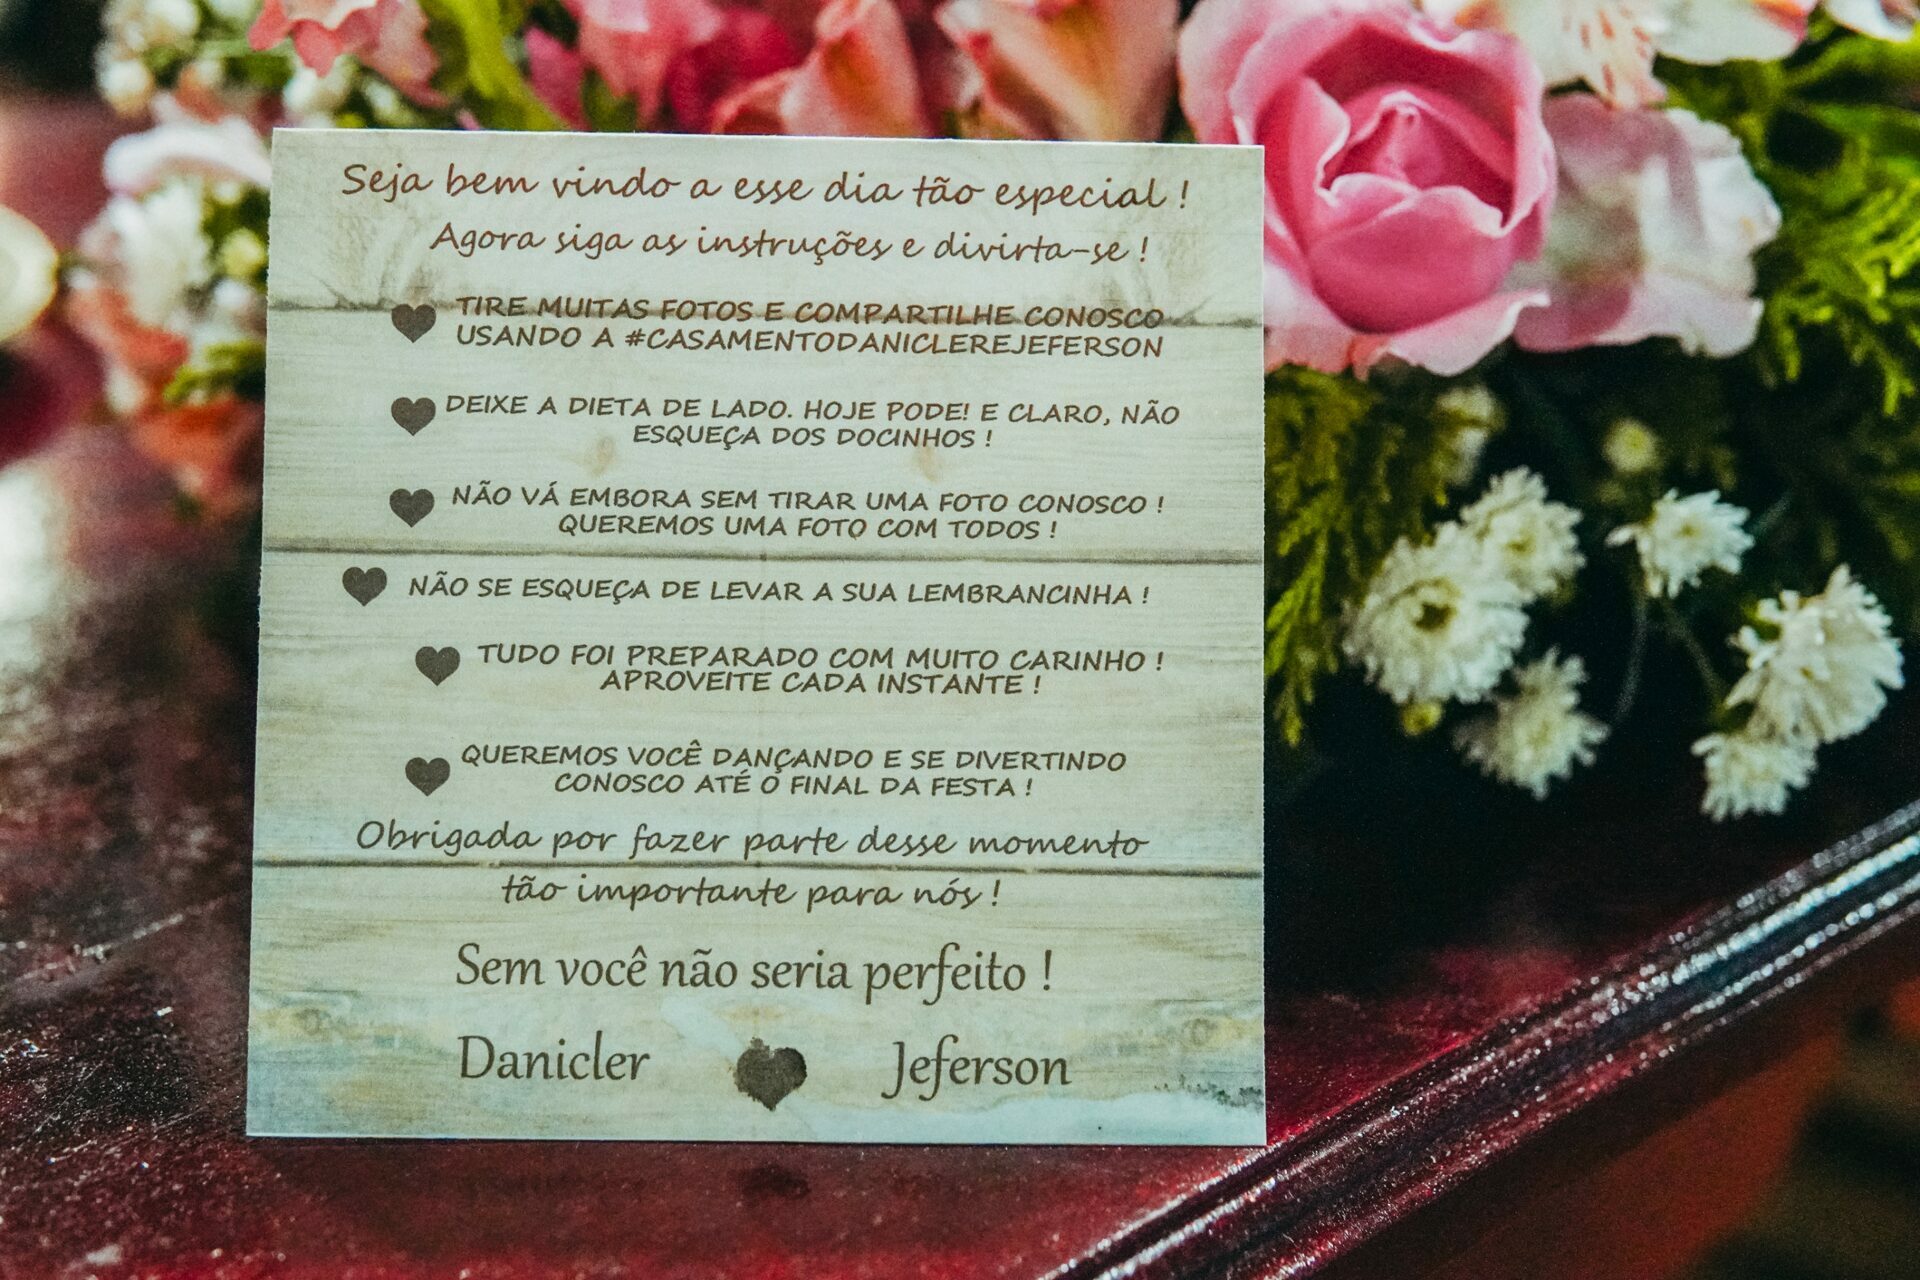 Seja bem vindo a esse dia tão especial !
Agora siga as instruções e divirta-se !
TIRE MUITAS FOTOS E COMPARTILHE CONOSCO
USANDO A #CASAMENTODANICLEREJEFERSON
DEIXE A DIETA DE LADO. HOJE PODE! E CLARO, NÃO
ESQUEÇA DOS DOCINHOS !
NÃO VÁ EMBORA SEM TIRAR UMA FOTO CONOSCO !
QUEREMOS UMA FOTO COM TODOS !
NÃO SE ESQUEÇA DE LEVAR A SUA LEMBRANCINHA !
TUDO FOI PREPARADO COM MUITO CARINHO !
APROVEITE CADA INSTANTE !
QUEREMOS VOCÊ DANÇANDO E SE DIVERTINDO
CONOSCO ATÉ O FINAL DA FESTA !
Obrigada por fazer parte desse momento
tão importante para nós !
Sem você não seria perfeito !
Danicler Jeferson